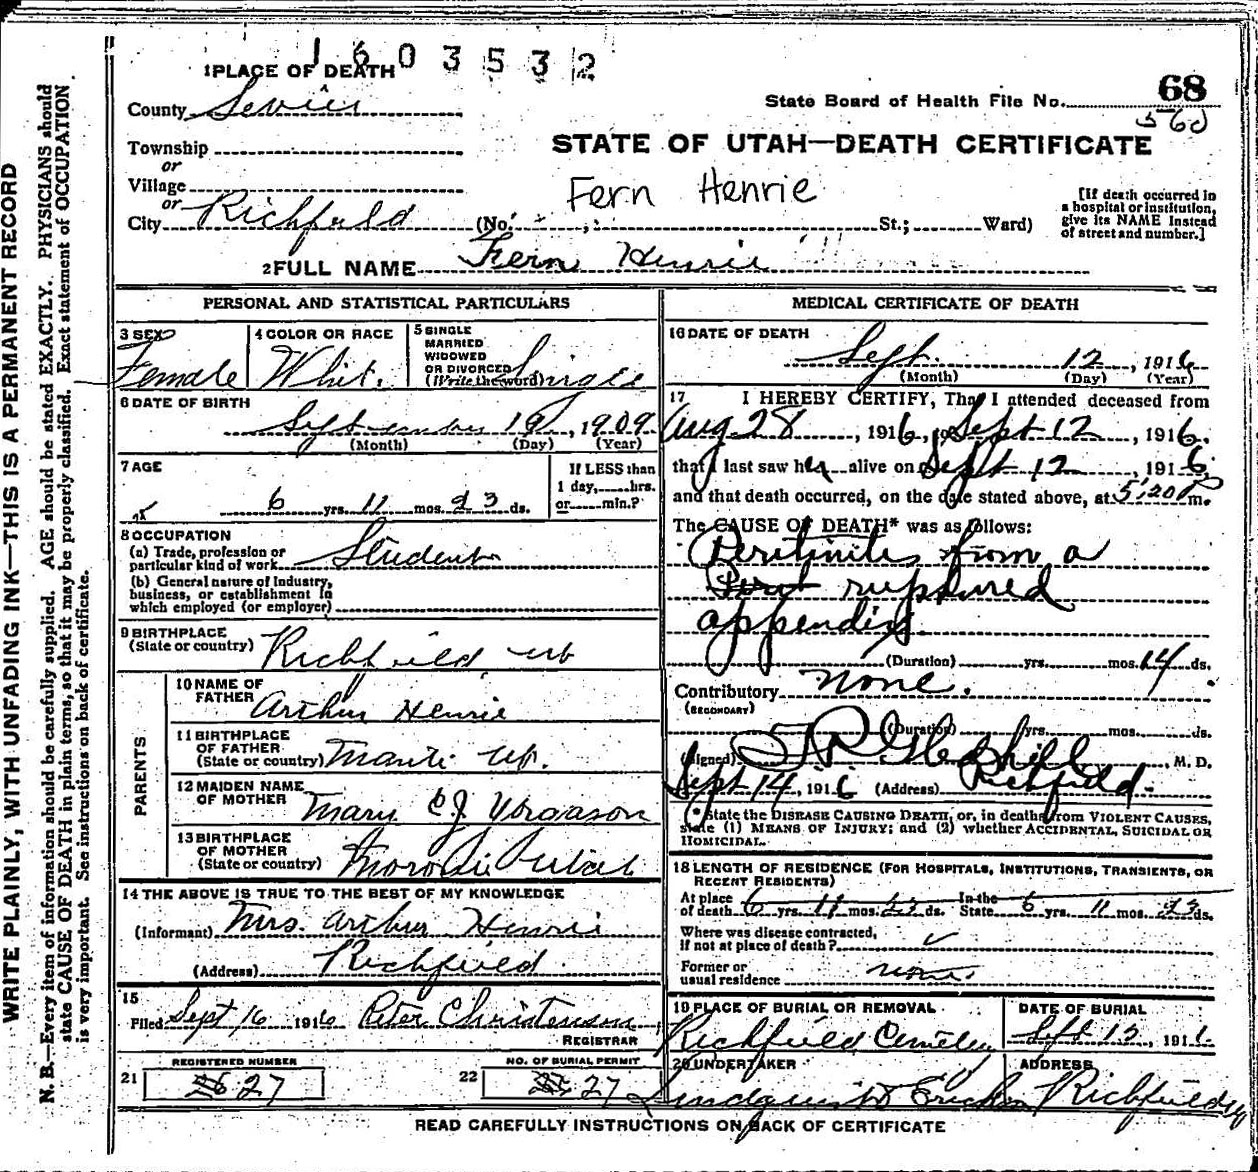 1603532
1 PLACE OF DEATH
68
County Sevier
State Board of Health File No.
560
Township
STATE OF UTAH—DEATH CERTIFICATE
or
Village
Fern Henrie
or
City Richfield (No. St.; Ward)
[If death occurred in
a hospital or institution,
give its NAME instead
of street and number.]
2 FULL NAME Fern Henrie
PERSONAL AND STATISTICAL PARTICULARS
3 SEX Female
4 COLOR OR RACE White
5 SINGLE
MARRIED
WIDOWED
OR DIVORCED
(Write the word) Single
6 DATE OF BIRTH
September 19, 1909
(Month) (Day) (Year)
7 AGE
6 yrs. 11 mos. 23 ds.
If LESS than
1 day, hrs.
or min.?
8 OCCUPATION
(a) Trade, profession or
particular kind of work Student
(b) General nature of Industry,
business, or establishment in
which employed (or employer)
9 BIRTHPLACE
(State or country) Richfield Ut
PARENTS
10 NAME OF
FATHER Arthur Henrie
11 BIRTHPLACE
OF FATHER
(State or country) Manti Ut.
12 MAIDEN NAME
OF MOTHER Mary
13 BIRTHPLACE
OF MOTHER
(State or country) Moroni Utah
14 THE ABOVE IS TRUE TO THE BEST OF MY KNOWLEDGE
(Informant) Mrs. Arthur Henrie
(Address) Richfield
15
Filed Sept 16 1916 Peter Christensen
REGISTRAR
REGISTERED NUMBER
21 27
NO. OF BURIAL PERMIT
22 27
MEDICAL CERTIFICATE OF DEATH
16 DATE OF DEATH
Sept. 12, 1916
(Month) (Day) (Year)
17 I HEREBY CERTIFY, That I attended deceased from
Aug 28, 1916, to Sept 12, 1916.
that I last saw her alive on Sept 12, 1916,
and that death occurred, on the date stated above, at 5:20 P m.
The CAUSE OF DEATH* was as follows:
Peritinitis from a
ruptured
appendix
(Duration) yrs. mos. 14 ds.
Contributory none.
(SECONDARY)
(Duration) yrs. mos. ds.
(Signed) , M. D.
Sept 14, 1916 (Address) Richfield.
*State the DISEASE CAUSING DEATH, or, in deaths from VIOLENT CAUSES,
state (1) MEANS OF INJURY; and (2) whether ACCIDENTAL, SUICIDAL OR
HOMICIDAL.
18 LENGTH OF RESIDENCE (FOR HOSPITALS, INSTITUTIONS, TRANSIENTS, OR
RECENT RESIDENTS)
At place
of death 6 yrs. 11 mos. 23 ds. In the State 6 yrs. 11 mos. 23 ds.
Where was disease contracted,
if not at place of death?
Former or
usual residence none.
19 PLACE OF BURIAL OR REMOVAL
Richfield Cemetery
DATE OF BURIAL
Sept 13, 1916
20 UNDERTAKER
ADDRESS
Richfield
READ CAREFULLY INSTRUCTIONS ON BACK OF CERTIFICATE
WRITE PLAINLY, WITH UNFADING INK—THIS IS A PERMANENT RECORD
N. B.—Every item of information should be carefully supplied. AGE should be stated EXACTLY. PHYSICIANS should
state CAUSE OF DEATH in plain terms, so that it may be properly classified. Exact statement of OCCUPATION
is very important. See instructions on back of certificate.